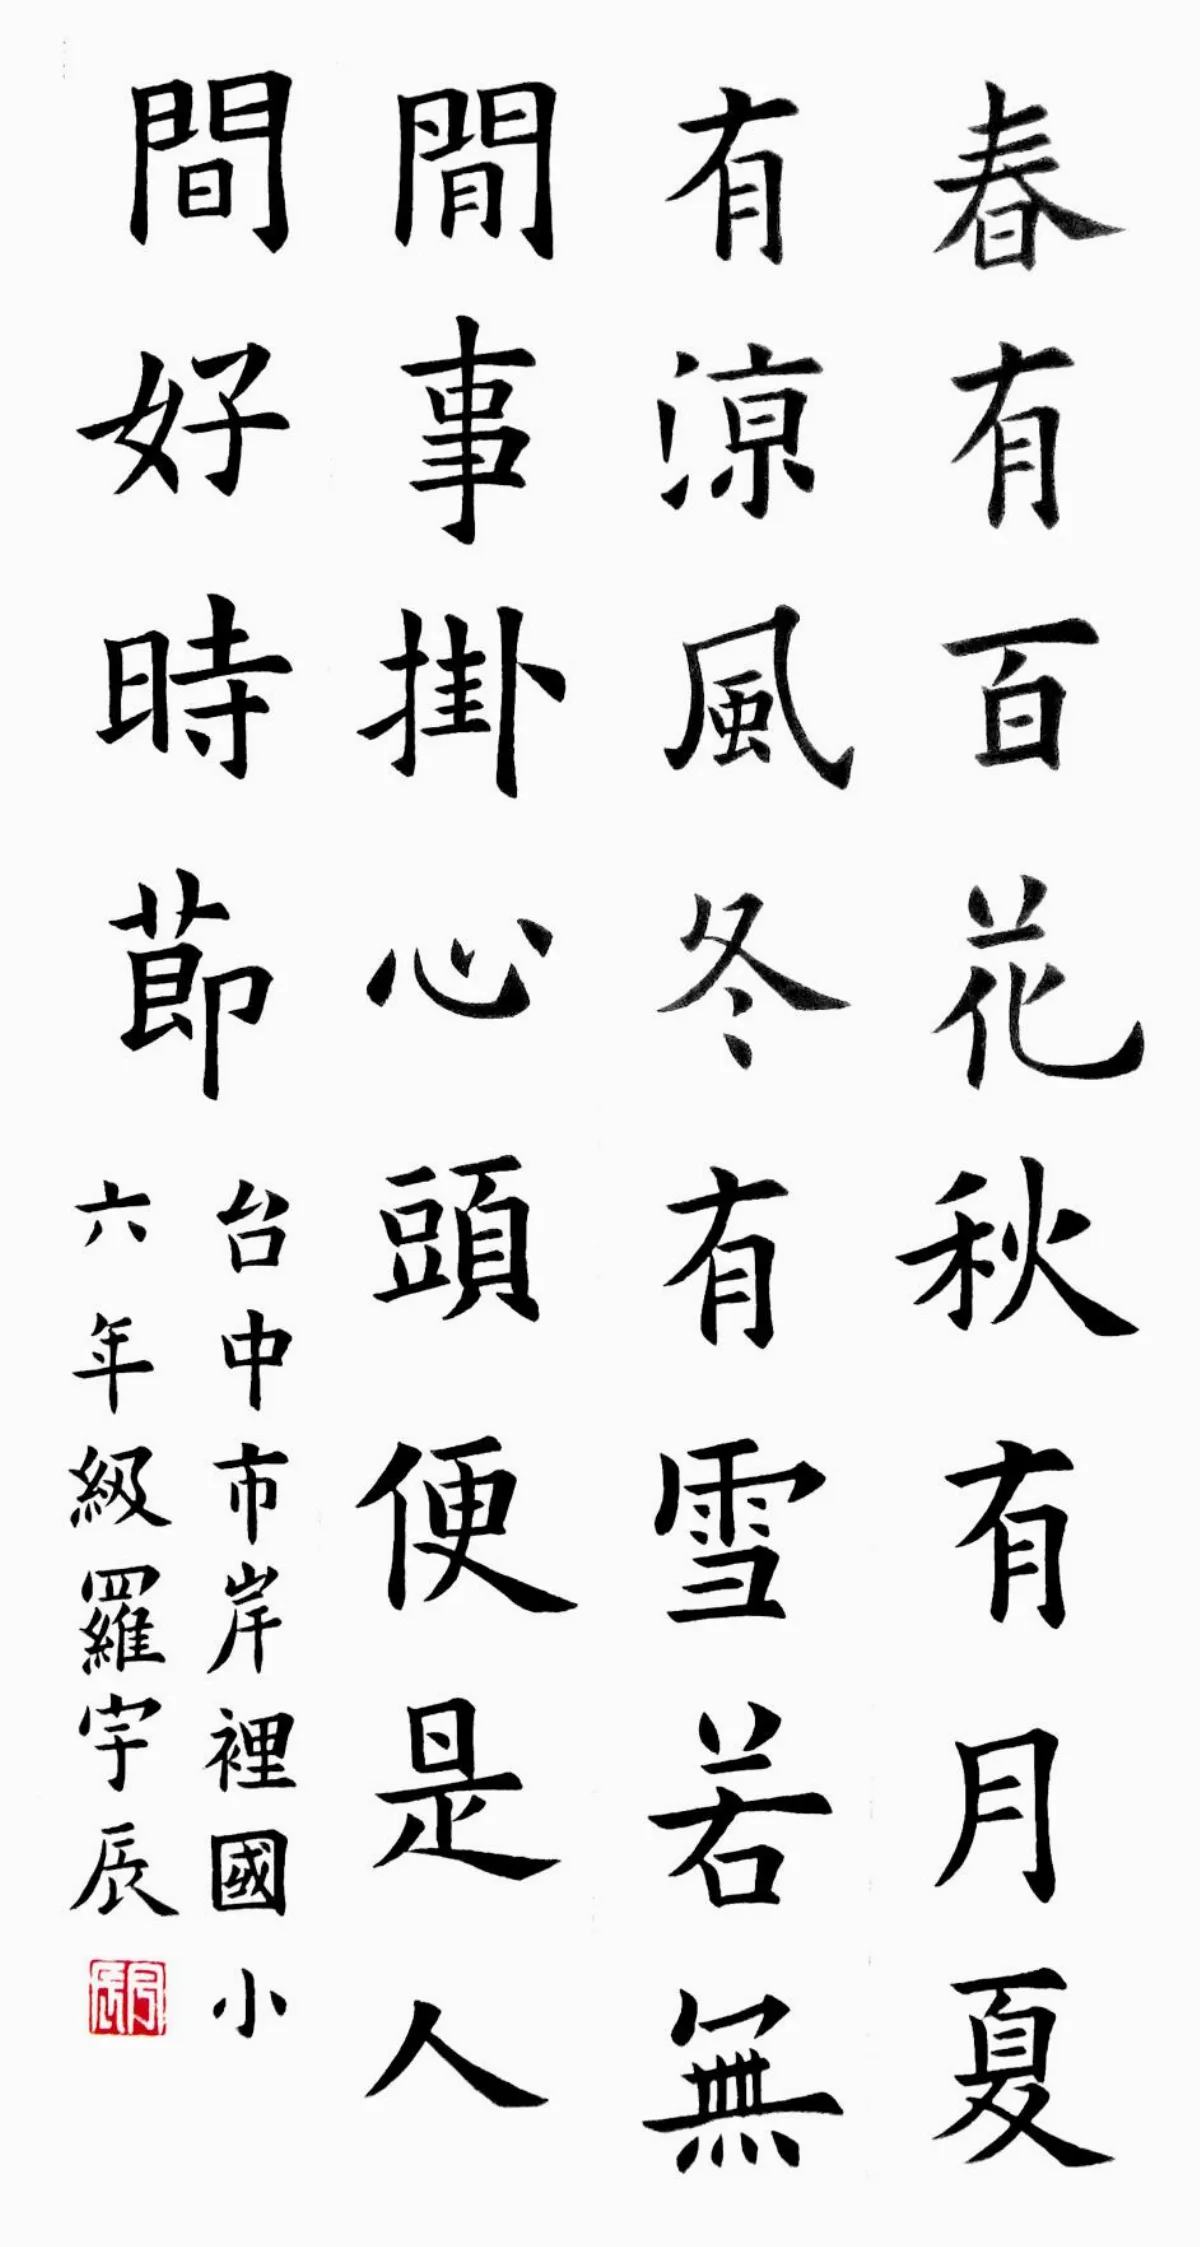 春有百花秋有月夏
有涼風冬有雪若無
閒事掛心頭便是人
間好時節
台中市岸裡國小
六年級羅宇辰